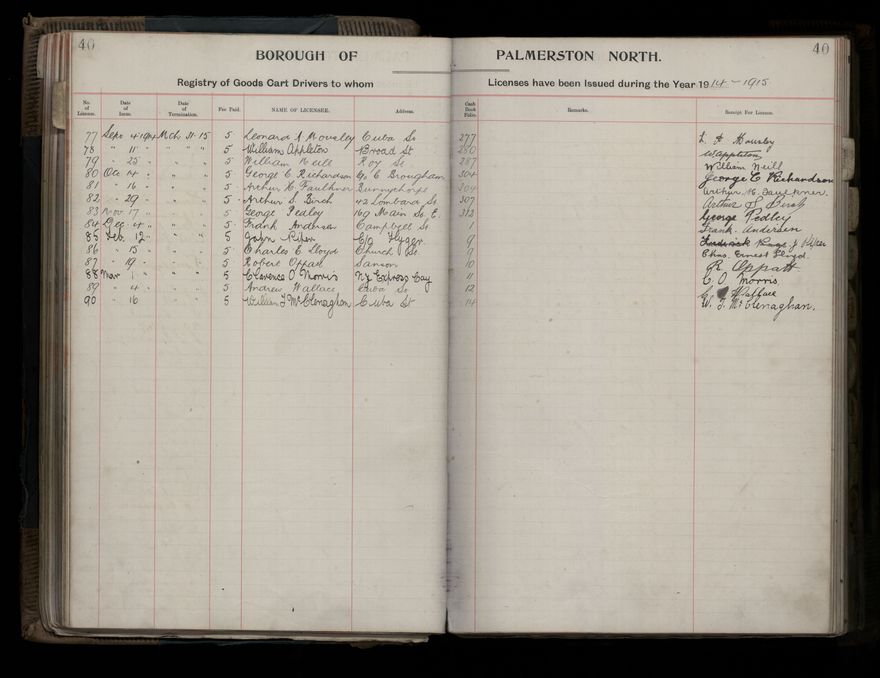 40
40
BOROUGH OF PALMERSTON NORTH.
Registry of Goods Cart Drivers to whom Licenses have been Issued during the Year 1914-1915
No. of License. Date of Issue. Date of Termination. Fee Paid. NAME OF LICENSEE. Address. Cash Book Folio. Remarks. Receipt For License.
77 Sept 4 1914 Mch 31-15 5 Leonard A Mousley Cuba St 277 L. A Mousley
78 " 11 " " " " 5 William Appleton Broad St 280 W Appleton
79 " 25 " " " 5 William Neill Roy St 287 William Neill
80 Oct 14 " " " 5 George C Richardson C/o C Brougham 304 George C Richardson
81 " 16 " " " 5 Arthur H. Faulkner Bunnythorpe 304 Arthur H. Faulkner.
82 " 29 " " " 5 Arthur S Birch 42 Lombard St 307 Arthur S Birch
83 Nov 17 " " " 5 George Pedley 169 Main St E. 312 George Pedley
84 Dec 4 " " " 5 Frank Andersen Campbell St 1 Frank Andersen
85 Feb. 12 " " " 5 John Piper C/o Flyger 9 J Piper
86 " 15 " " " 5 Charles E Lloyd Church St 9 Chas. Ernest Lloyd.
87 " 19 " " " 5 Robert Oppatt Sanson 10 R Oppatt
88 Mar 1 " " " 5 Clarence O Morris NZ Express Coy 11 C. O. Morris
89 " 4 " " " 5 Andrew Wallace Cuba St 12 Wallace
90 " 16 5 William J McClenaghan Cuba St 14 W. J. McClenaghan.